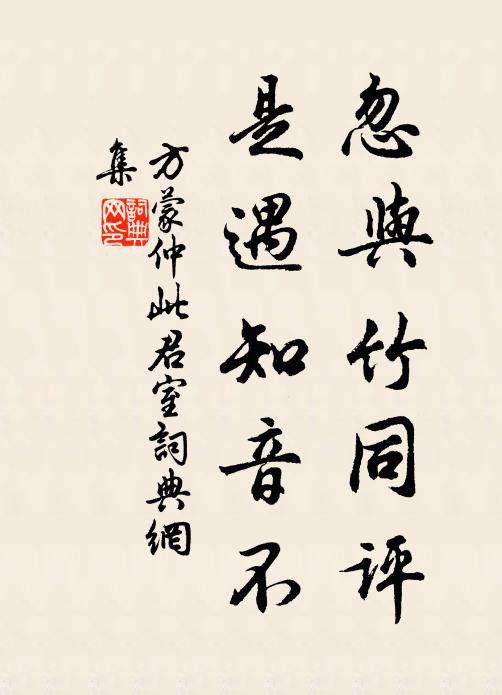 忽與竹同評
是遇知音不
方蒙仲此君室詞典網
集
詞典
网印